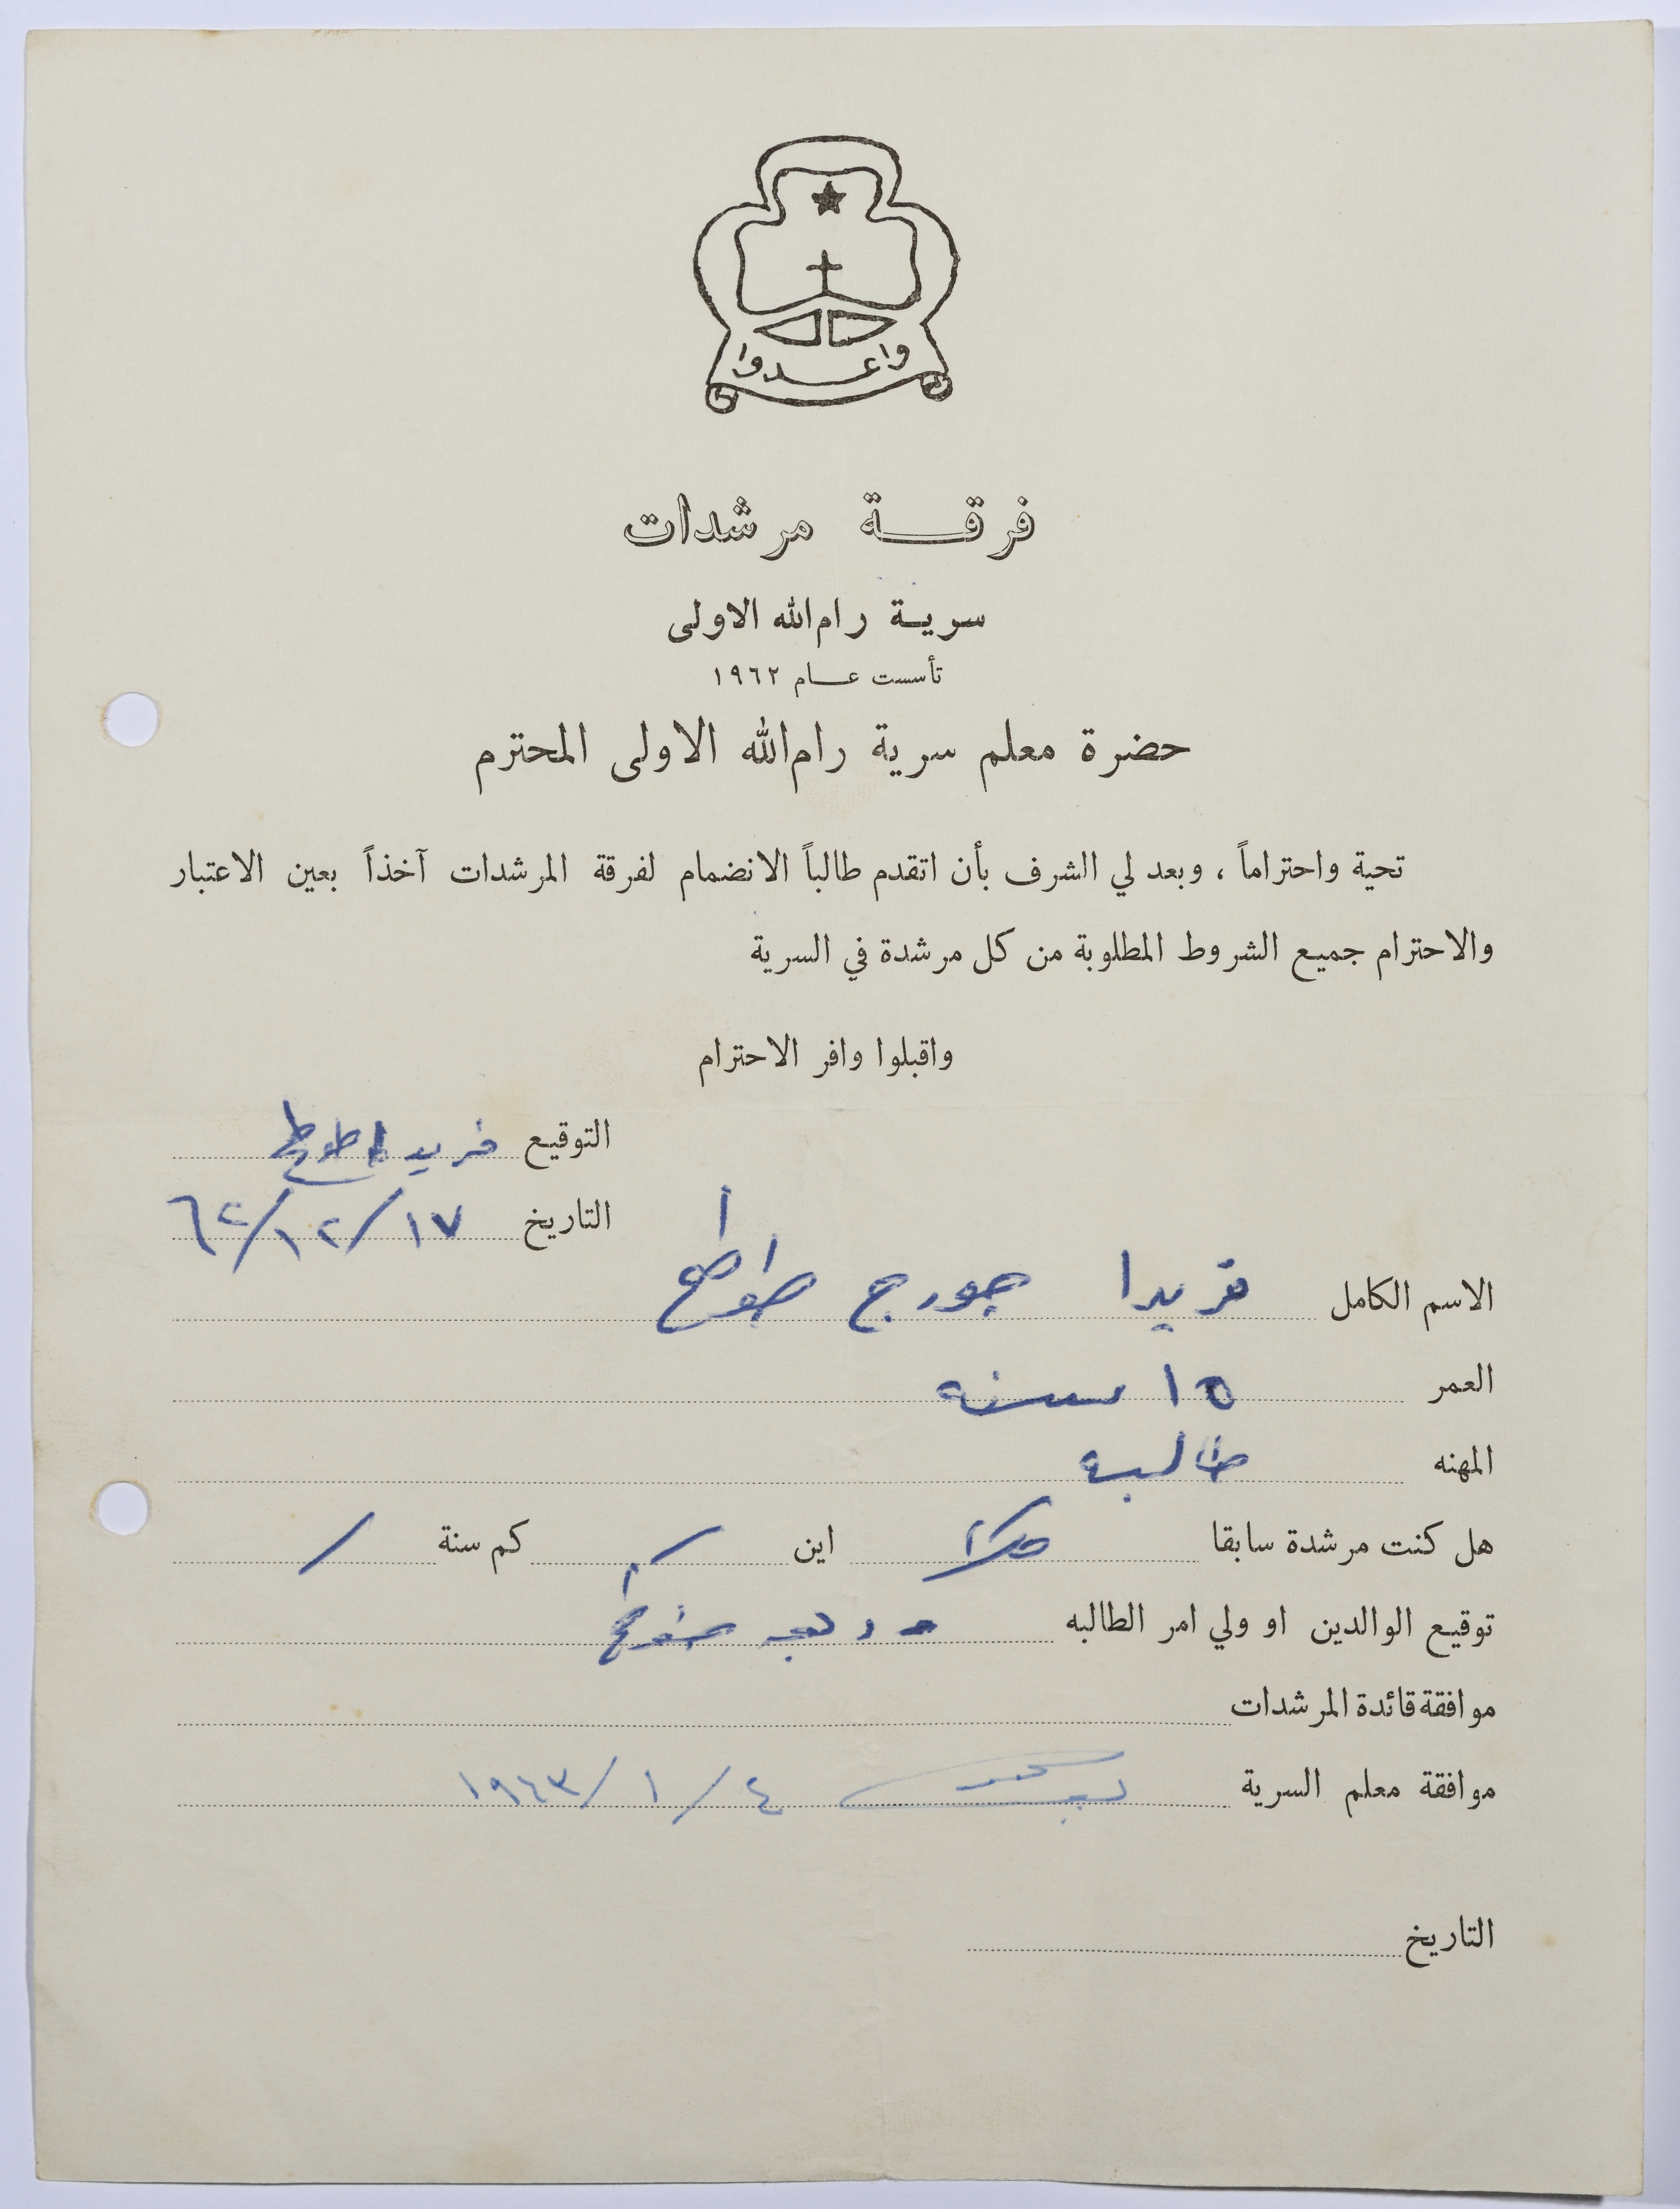 واعدوا
فرقة مرشدات
سرية رام الله الاولى
تأسست عام ١٩٦٢
حضرة معلم سرية رام الله الاولى المحترم
تحية واحتراماً ، وبعد لي الشرف بأن اتقدم طالباً الانضمام لفرقة المرشدات آخذاً بعين الاعتبار
والاحترام جميع الشروط المطلوبة من كل مرشدة في السرية
واقبلوا وافر الاحترام
التوقيع فريدا طوطح
التاريخ ١٧/١٢/٦٢
الاسم الكامل فريدا جورج طوطح
العمر ١٥ سنه
المهنه طالبه
هل كنت مرشدة سابقا كلا اين / كم سنة /
توقيع الوالدين او ولي امر الطالبه طوطح
موافقة قائدة المرشدات
موافقة معلم السرية ٤/١/١٩٦٣
التاريخ